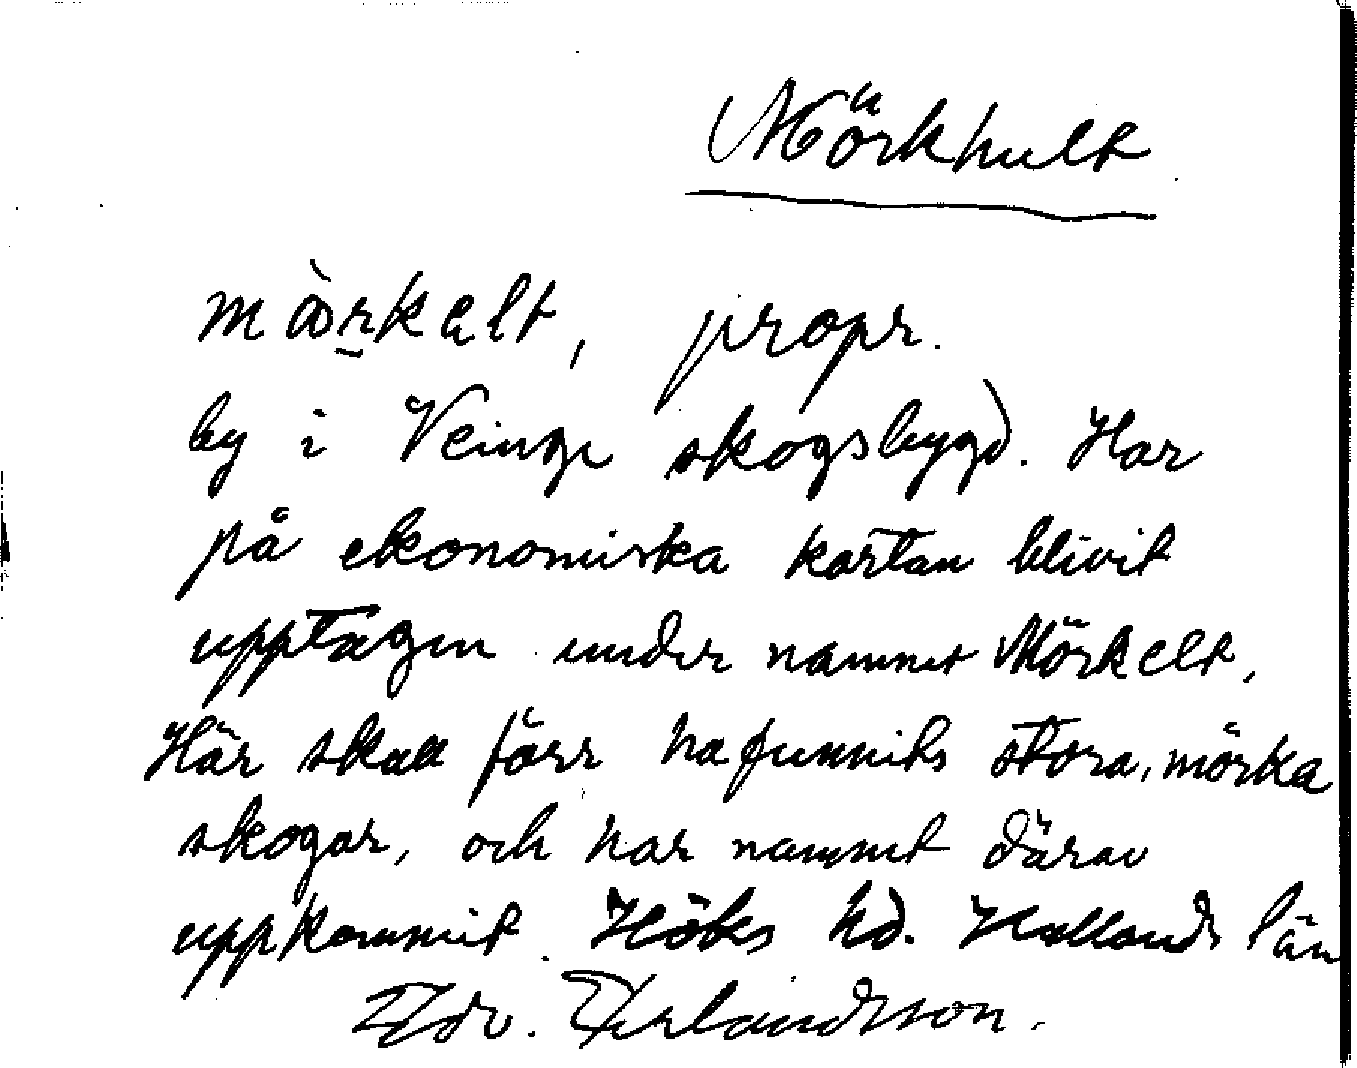 Mörkhult
mœ̀rkelt, propr.
by i Veinge skogsbygd. Har
på ekonomiska kartan blivit
upptagen under namnet Mörkelt.
Här skall förr ha funnits stora, mörka
skogar, och har namnet därav
uppkommit. Höks hd. Hallands län
Edv. Erlandsson.